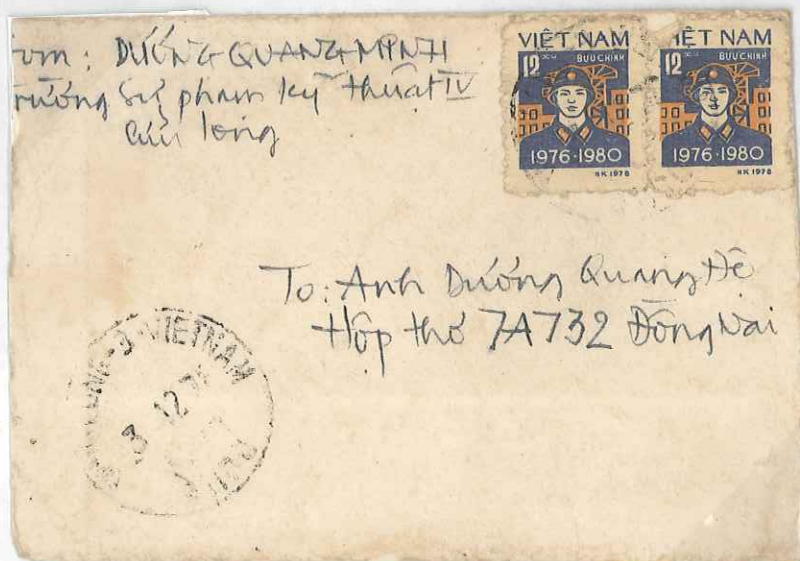 DƯƠNG QUANG MINH
Sư phạm Kỹ thuật IV
Cửu long
VIỆT NAM
12 xu BƯU CHÍNH
1976-1980
1978
IỆT NAM
12 xu BƯU CHÍNH
1976-1980
NK 1978
To: Anh Dương Quang Đệ
Hộp thơ 7A732 Đồng Nai
VIETNAM
3 12